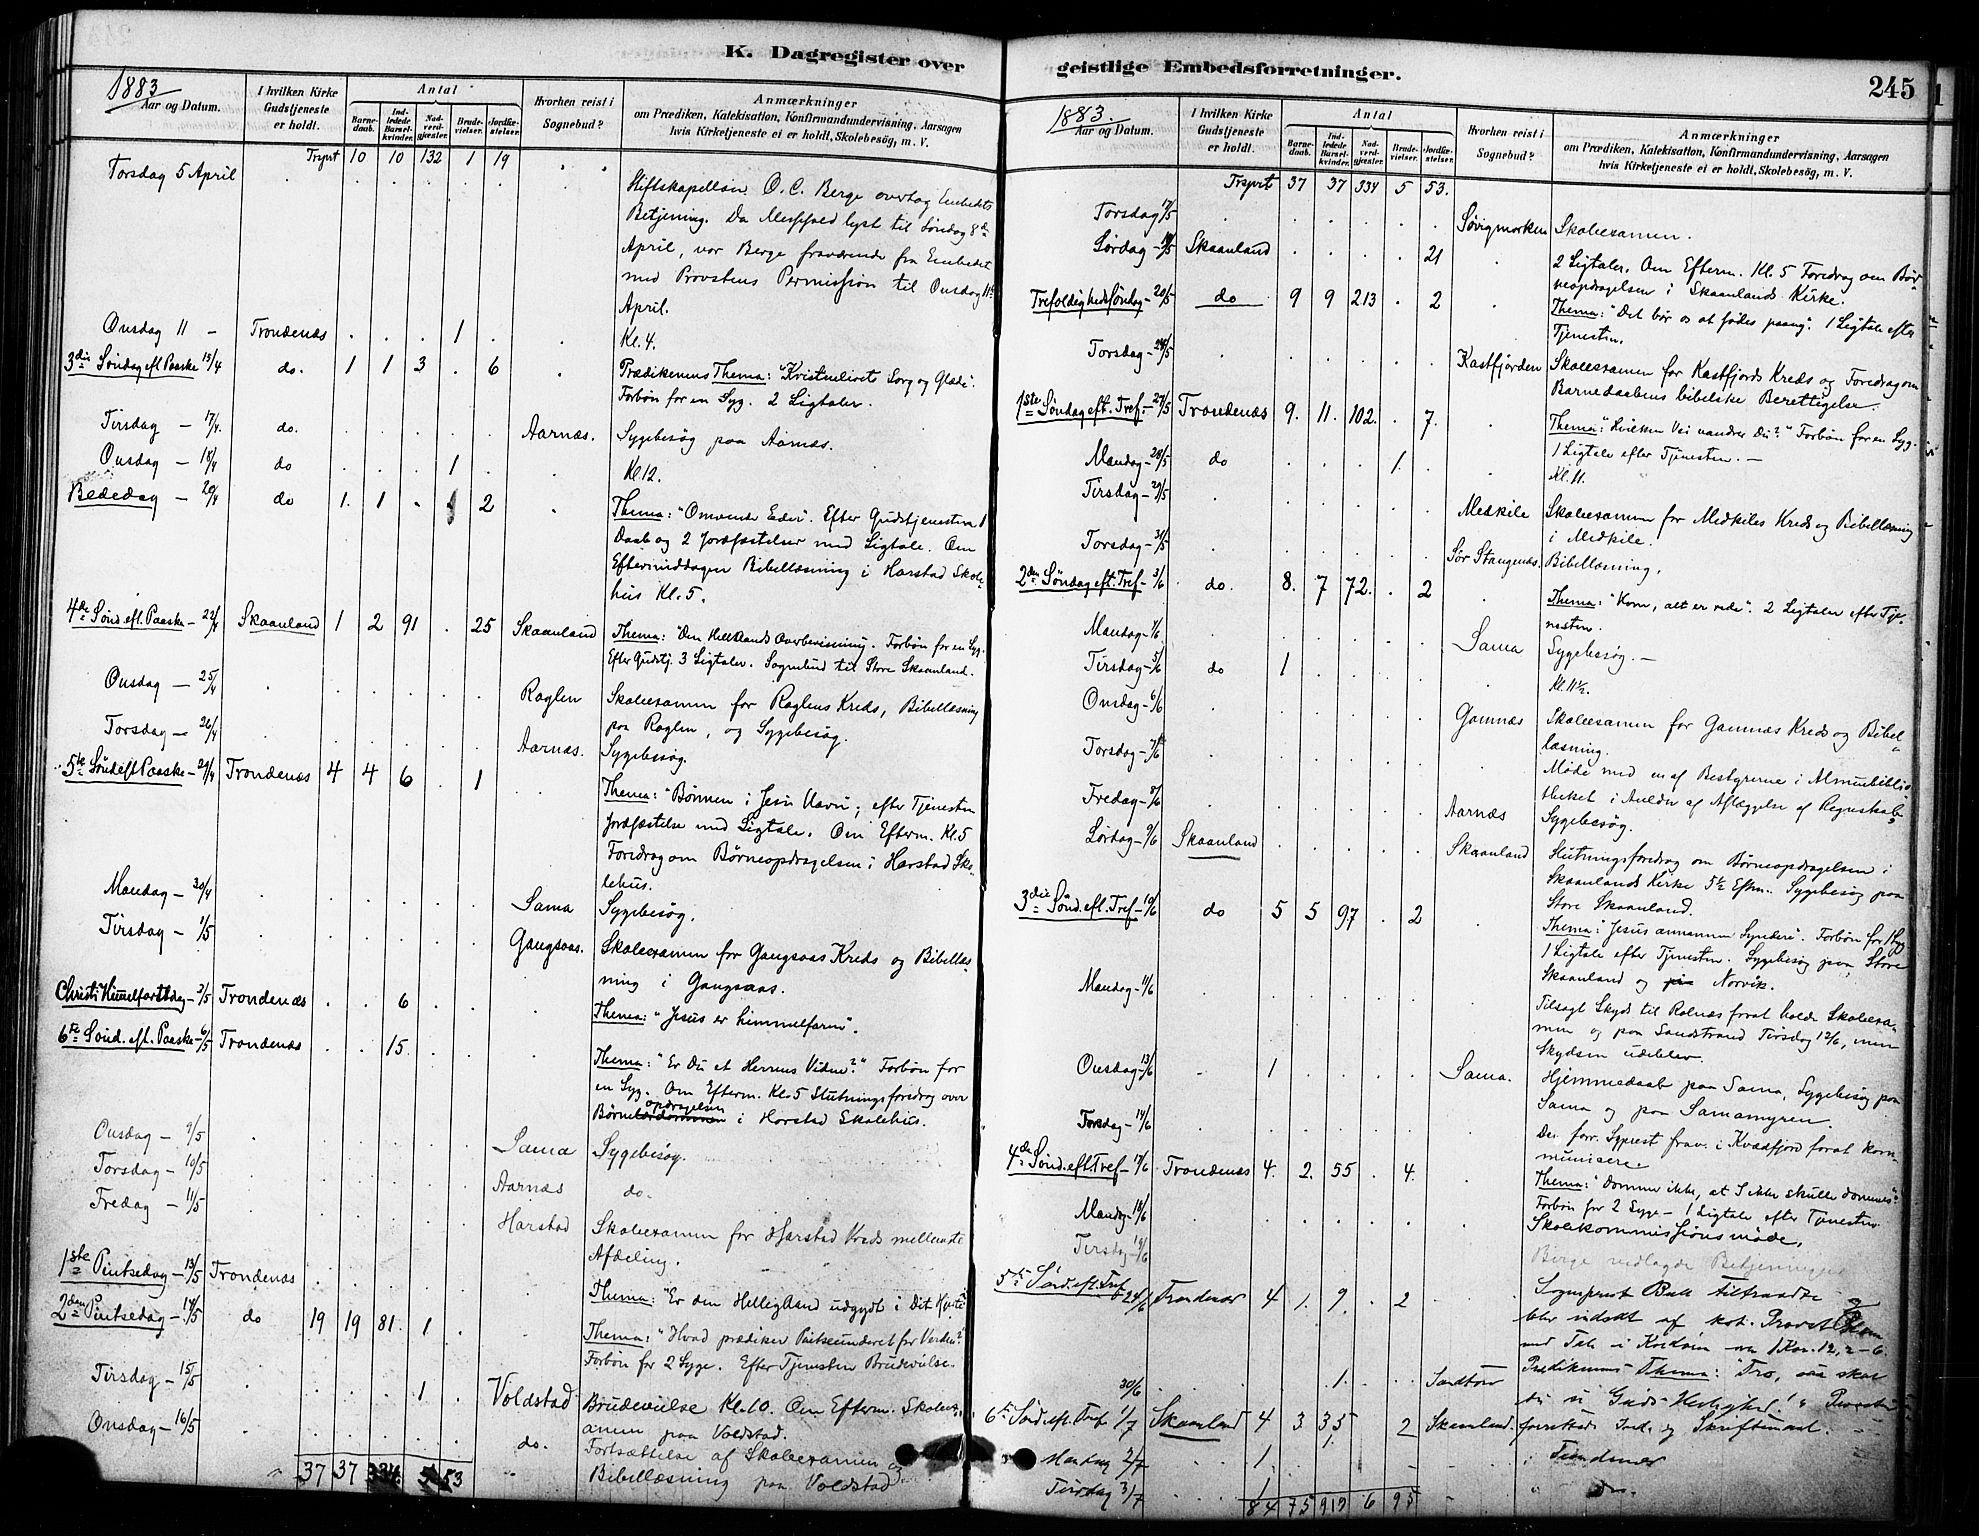 K. Dagregister over
1883
Aar og Datum.
I hvilken Kirke
Gudstjeneste
er holdt.
Antal
Barne-
daab.
Ind-
ledede
Barsel-
kvinder.
Nad-
verd-
gjæster.
Brude-
vielser.
Jordfæ-
stelser.
Hvorhen reist i
Sognebud?
Anmærkninger
om Prædiken, Katekisation, Konfirmandundervisning, Aarsagen
hvis Kirketjeneste ei er holdt, Skolebesøg, m. V.
Trsprt 10 10 132 1 19
Torsdag 5 April
Stiftskapellan O. C. Berge overtog Embedets
Betjening. Da Messefald lyst til Søndag 8de
April, var Berge fraværende fra Embedet
med Provstens Permission til Onsdag 11te
April.
Onsdag 11 – Trondenæs 1 Kl. 4.
3die Søndag eft Paaske 15/4 do. 1 1 3 . 6 Prædikenens Thema: "Kristenlivets Sorg og Glæde".
Forbøn for en Syg. 2 Ligtaler.
Tirsdag – 17/4 do. Aarnæs. Sygebesøg paa Aarnæs.
Onsdag – 18/4 do 1 Kl. 12.
Bededag – 20/4 do 1. 1 . 2 Thema: "Omvender Eder". Efter Gudstjenesten 1
Daab og 2 Jordfæstelser med Ligtale. Om
Eftermiddagen Bibellæsning i Harstad Skole-
hus Kl. 5.
4de Sønd. eft. Paaske – 22/4 Skaanland 1 2 91 . 25 Skaanland Thema: "Den Helligaands Overbevisning. Forbøn for en Syg.
Efter Gudstj. 3 Ligtaler. Sognebud til Store Skaanland.
Onsdag – 25/4 Roglen Skoleexamen for Roglens Kreds, Bibellæsning
paa Roglen, og Sygebesøg.
Torsdag – 26/4 Aarnæs. Sygebesøg.
5te Sønd eft Paaske – 29/4 Trondenæs 4 4 6 . 1 Thema: "Bønnen i Jesu Navn; efter Tjenesten
Jordfæstelse med Ligtale. Om Efterm. Kl. 5
Foredrag om Børneopdragelsen i Harstad Sko-
lehus.
Mandag – 30/4 Sama Sygebesøg.
Tirsdag – 1/5 Gangsaas. Skoleexamen for Gangsaas Kreds og Bibellæs-
ning i Gangsaas.
Christi Himmelfartsdag – 3/5 Trondenæs . . 6 Thema: "Jesus er himmelfaren".
6te Sønd. eft. Paaske – 6/5 Trondenæs . . 15. Thema: "Er Du et Herrens Vidne?" Forbøn for
en Syg. Om Efterm. Kl. 5 Slutningsforedrag over
Børneopdragelsen i Harstad Skolehus.
Onsdag – 9/5 Sama Sygebesøg.
Torsdag – 10/5 Aarnæs do.
Fredag – 11/5 Harstad Skoleexamen for Harstad Kreds mellemste
Afdeling.
1ste Pintsedag – 13/5 Trondenæs Thema: "Er den Helligaand udgydt i Dit Hjerte
2den Pintsedag – 14/5 do 19 19 81. 1 . Thema: "Hvad prædiker Pintseunderet for Verden?"
Forbøn for 2 Syge. Efter Tjenesten Brudevielse.
Tirsdag – 15/5 1 Voldstad Brudevielse Kl. 10. Om Efterm. Skoleex-
amen paa Voldstad.
Onsdag – 16/5 do. Fortsættelse af Skoleexamen og
Bibellæsning paa Voldstad
37 37 334 5 53

geistlige Embedsforretninger.
245
1883.
Aar og Datum.
I hvilken Kirke
Gudstjeneste
er holdt.
Antal
Barne-
daab.
Ind-
ledede
Barsel-
kvinder.
Nad-
verd-
gjæster.
Brude-
vielser.
Jordfæ-
stelser.
Hvorhen reist i
Sognebud?
Anmærkninger
om Prædiken, Katekisation, Konfirmandundervisning, Aarsagen
hvis Kirketjeneste ei er holdt, Skolebesøg, m. V.
Trsprt 37 37 334 5 53.
Torsdag 17/5 Søvigmorken Skoleexamen.
Lørdag – 19/5 Skaanland 21 2 Ligtaler. Om Efterm. Kl. 5 Foredrag om Bør-
neopdragelsen i Skaanlands Kirke.
Trefoldighedssøndag – 20/5 do 9 9 213 . 2 Thema: "Det bør os at fødes paany". 1 Ligtale efter
Tjenesten.
Torsdag – 24/5 Kastfjorden Skoleexamen for Kastfjords Kreds og Foredrag om
Barnedaabens bibelske Berettigelse.
1ste Søndag eft. Tref. – 27/5 Trondenæs 9. 11. 102. . 7. Thema: "Hvilken Vei vandrer Du?" Forbøn for en Syg.
1 Ligtale efter Tjenesten. –
Mandag – 28/5 do 1. Kl. 11.
Tirsdag – 29/5 Medkile Skoleexamen for Medkiles Kreds og Bibellæsning
i Medkile.
Torsdag – 31/5 Sør Stangenæs. Bibellæsning.
2den Søndag eft. Tref – 3/6 do. 8. 7 72. . 2 Thema: "Kom, alt er rede". 2 Ligtaler efter Tje-
nesten.
Mandag – 4/6 Sama Sygebesøg. –
Tirsdag – 5/6 do 1 Kl. 11½.
Onsdag – 6/6 Gamnæs Skoleexamen for Gamnæs Kreds og Bibel-
læsning.
Torsdag – 7/6 Møde med en af Bestyrerne i Almuebiblio-
theket i Anledn af Aflæggelse af Regnskab.
Fredag – 8/6 Aarnæs Sygebesøg.
Lørdag – 9/6 Skaanland Skaanland Slutningsforedrag om Børneopdragelsen i
Skaanlands Kirke 5½ Efterm. Sygebesøg paa
Store Skaanland.
3die Sønd. eft. Tref – 10/6 do 5 5 97 . 2 Thema: "Jesus annammer Syndere". Forbøn for 1 Syg
1 Ligtale efter Tjenesten. Sygebesøg paa Store
Skaanland og paa Norvik.
Mandag – 11/6 Tilsagt Skyds til Rolnæs forat holde Skoleexa-
men og paa Sandstrand Tirsdag 12/6, men
Skydsen udeblev.
Onsdag – 13/6 1 Sama. Hjemmedaab paa Sama, Sygebesøg paa
Sama og paa Samamyren.
Torsdag – 14/6 Den forr. Sgprest frav. i Kvædfjord forat kom-
munisere.
4de Sønd. eft. Tref – 17/6 Trondenæs 4. 2. 55 . 4. Thema: "Dømmer ikke, at I ikke skulle dømmes".
Forbøn for 2 Syge – 1 Ligtale efter Tjenesten
Mandag – 18/6 Skolekommissionsmøde.
Tirsdag – 19/6 Berge nedlagde Betjeningen
5te Sønd. eft. Tref 24/6 Trondenæs 4 1. 9. . 2 Sognprest Balk tiltraadte og
blev indsat af kst. Provst
med Tale i Kordøren over 1 Kor. 12, 2–6.
Prædikenens Thema: "Tro, saa skal
30/6 1. Sandtorv du se Guds Herlighed!"
6te Sønd. eft. Tref 1/7 Skaanland 4 3 35 . 2 Skaanland. forrettede Ind. og Skriftemaal.
Mandag 2/7 1 1. Trondenæs
Tirsdag 3/7 1 do.
84 75 919 6 95